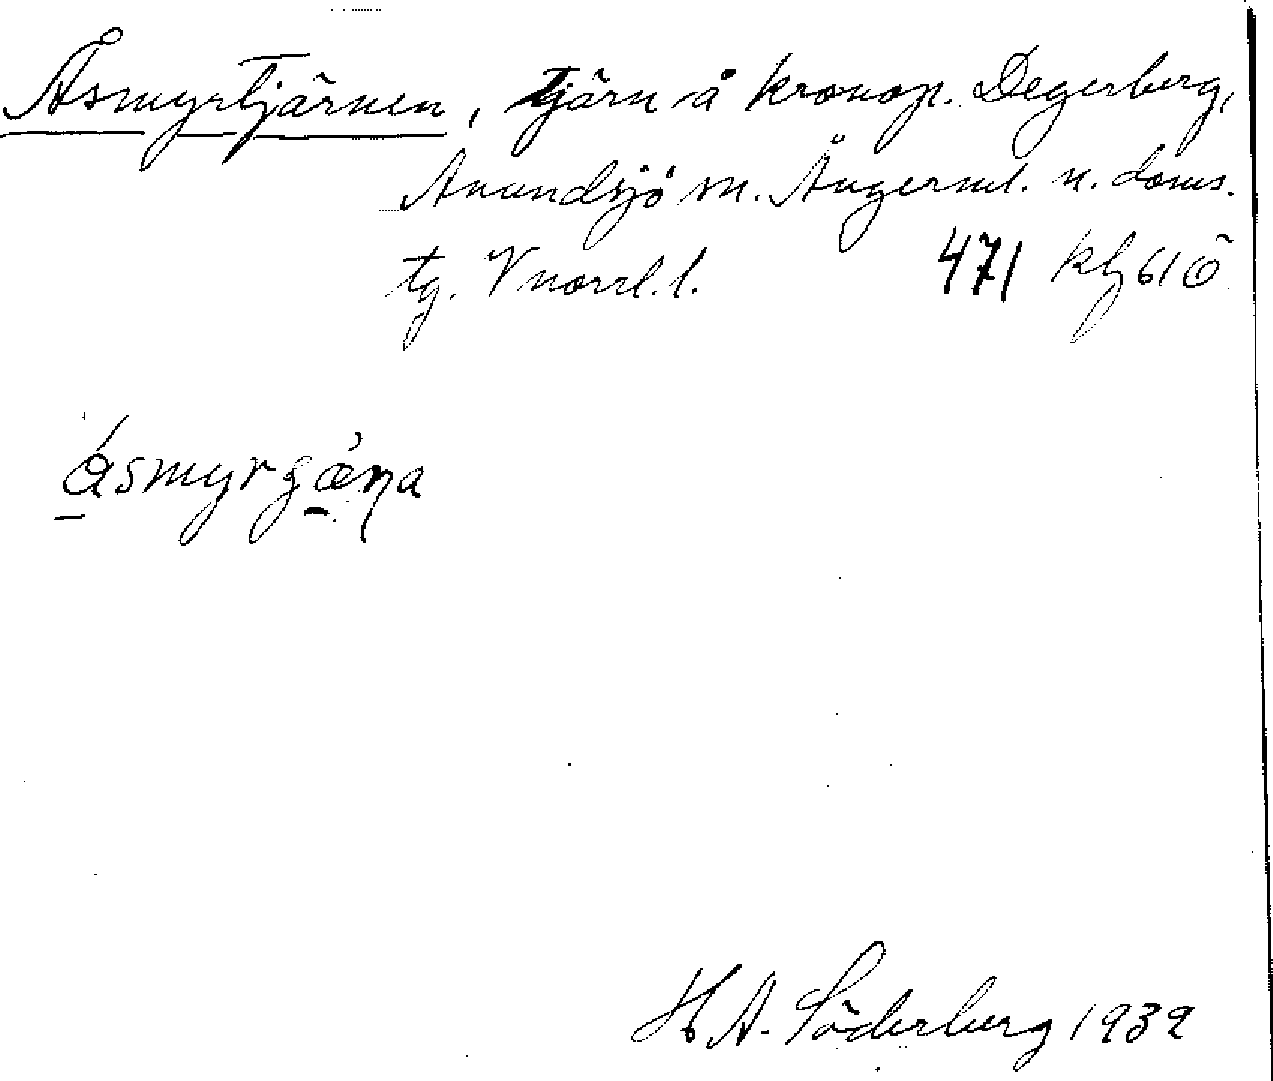 Åsmyrtjärnen, tjärn å kronop. Degerberg,
Anundsjö sn. Ångerml. n. doms.
tg. V norrl. l. 471 kbl 61 Ö
åsmyrgæ̀ɳa
H A. Söderberg 1939